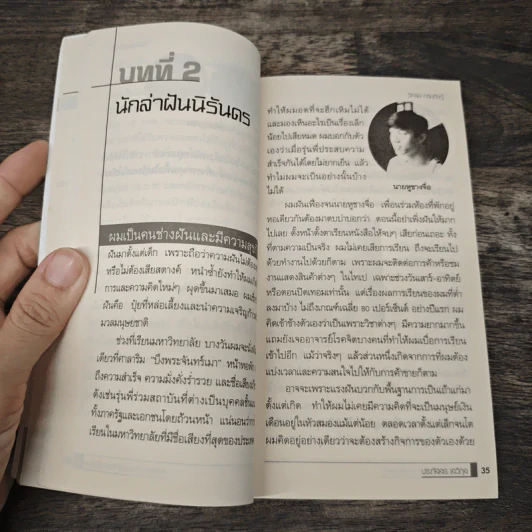 บทที่ 2
นักล่าฝันนิรันดร
ผมเป็นคนช่างฝันและมีความสุข
ฝันมาตั้งแต่เด็ก เพราะถือว่าความฝันไม่ต้อง
หรือไม่ต้องเสียสตางค์ หนำซ้ำยังทำให้ผม
การและความคิดใหม่ๆ ผุดขึ้นมาเสมอ ผมเชื่อ
ฝันคือ ปุ๋ยที่หล่อเลี้ยงและนำความเจริญก้าว
มวลมนุษยชาติ
ช่วงที่เรียนมหาวิทยาลัย บางวันผมจะนั่ง
เดียวที่ศาลาริม "บึงพระจันทร์เมา" หน้าหอพัก
ถึงความสำเร็จ ความมั่งคั่งร่ำรวย และชื่อเสียง
ดังเช่นรุ่นพี่ร่วมสถาบันที่ต่างเป็นบุคคลชั้น
ทั้งภาครัฐและเอกชนโดยถ้วนหน้า แน่นอนว่า
เรียนในมหาวิทยาลัยที่มีชื่อเสียงที่สุดของประเทศ
ทำให้ผมอดที่จะฮึกเหิมไม่ได้
และมองเห็นอะไรเป็นเรื่องเล็ก
น้อยไปเสียหมด ผมบอกกับตัว
เองว่าเมื่อรุ่นพี่ประสบความ
สำเร็จกันได้โดยไม่ยากเย็น แล้ว
ทำไมผมจะเป็นอย่างนั้นบ้าง
ไม่ได้
นายหูซางจือ
ผมฝันเฟื่องจนนายหูซางจือ เพื่อนร่วมห้องที่พักอยู่
หอเดียวกันต้องมาตบบ่าบอกว่า ตอนนี้อย่าเพิ่งฝันให้มาก
ไปเลย ตั้งหน้าตั้งตาเรียนหนังสือให้จบๆ เสียก่อนเถอะ ทั้ง
ที่ตามความเป็นจริง ผมไม่เคยเสียการเรียน ถึงจะเรียนไป
ด้วยทำงานไปด้วยก็ตาม เพราะผมจะติดต่อการค้าหรือชม
งานแสดงสินค้าต่างๆ ในไทเป เฉพาะช่วงวันเสาร์-อาทิตย์
หรือตอนปิดเทอมเท่านั้น แต่เรื่องผลการเรียนของผมที่ต่ำ
ลงมาบ้าง ไม่ถึงเกณฑ์เฉลี่ย ๘๐ เปอร์เซ็นต์ อย่างปีแรก ผม
คิดเข้าข้างตัวเองว่าเป็นเพราะวิชาต่างๆ มีความยากมากขึ้น
แถมยังเจออาจารย์โรคจิตบางคนที่ทำให้ผมเบื่อการเรียน
เข้าไปอีก แม้ว่าจริงๆ แล้วส่วนหนึ่งเกิดจากการที่ผมต้อง
แบ่งเวลาและความสนใจไปให้กับการค้าขายก็ตาม
อาจจะเพราะแรงฝันบวกกับพื้นฐานการเป็นเถ้าแก่มา
ตั้งแต่เกิด ทำให้ผมไม่เคยมีความคิดที่จะเป็นมนุษย์เงิน
เดือนอยู่ในหัวสมองแม้แต่น้อย ตลอดเวลาตั้งแต่เล็กจนโต
ผมคิดอยู่อย่างเดียวว่าจะต้องสร้างกิจการของตัวเองด้วย
35